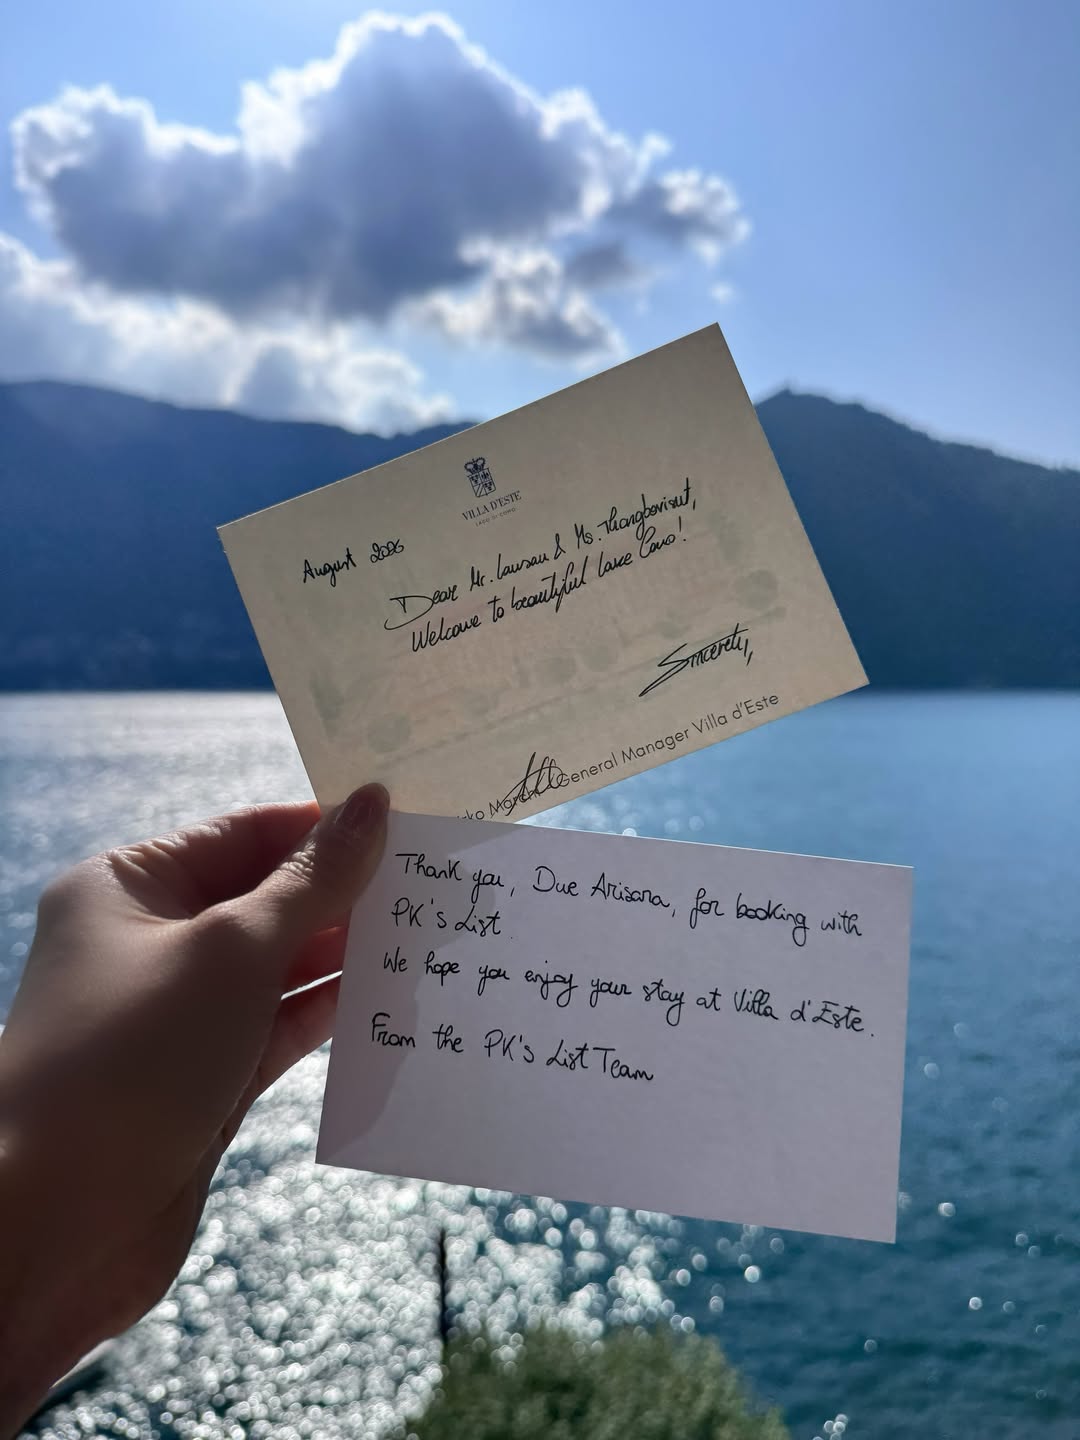 VILLA D'ESTE
LAGO DI COMO
August 2026
Dear Mr. Lawsau & Ms. Thangbovisut,
Welcome to beautiful Lake Como!
Sincerely,
General Manager Villa d'Este
Thank you, Due Arisara, for booking with
PK's List.
We hope you enjoy your stay at Villa d'Este.
From the PK's List Team